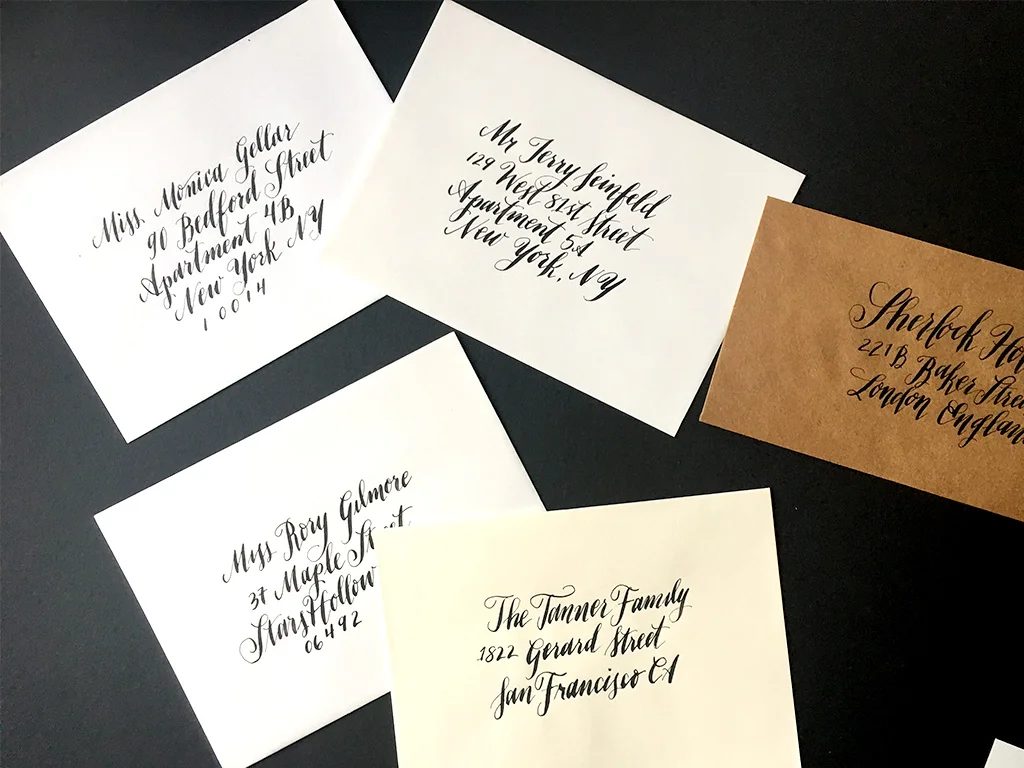 Miss Monica Gellar
90 Bedford Street
Apartment 4B
New York, NY
10014
Mr Jerry Seinfeld
129 West 81st Street
Apartment 5A
New York, NY
Sherlock
221B Baker
London England
Miss Rory Gilmore
37 Maple
Stars Hollow
06492
The Tanner Family
1822 Gerard Street
San Francisco CA